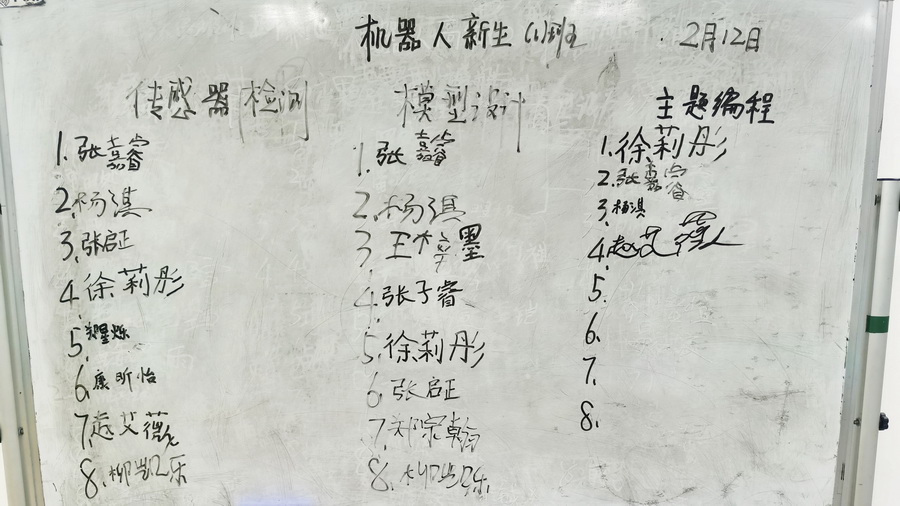 机器人新生(1)班 2月12日
传感器检测
1.张嘉睿
2.杨淇
3.张启正
4.徐莉彤
5.
6.康昕怡
7.赵艾薇
8.柳凯乐
模型设计
1.张嘉睿
2.杨淇
3.王梓墨
4.张子睿
5.徐莉彤
6.张启正
7.郑宗翰
8.柳凯乐
主题编程
1.徐莉彤
2.张嘉睿
3.杨淇
4.赵艾
5.
6.
7.
8.